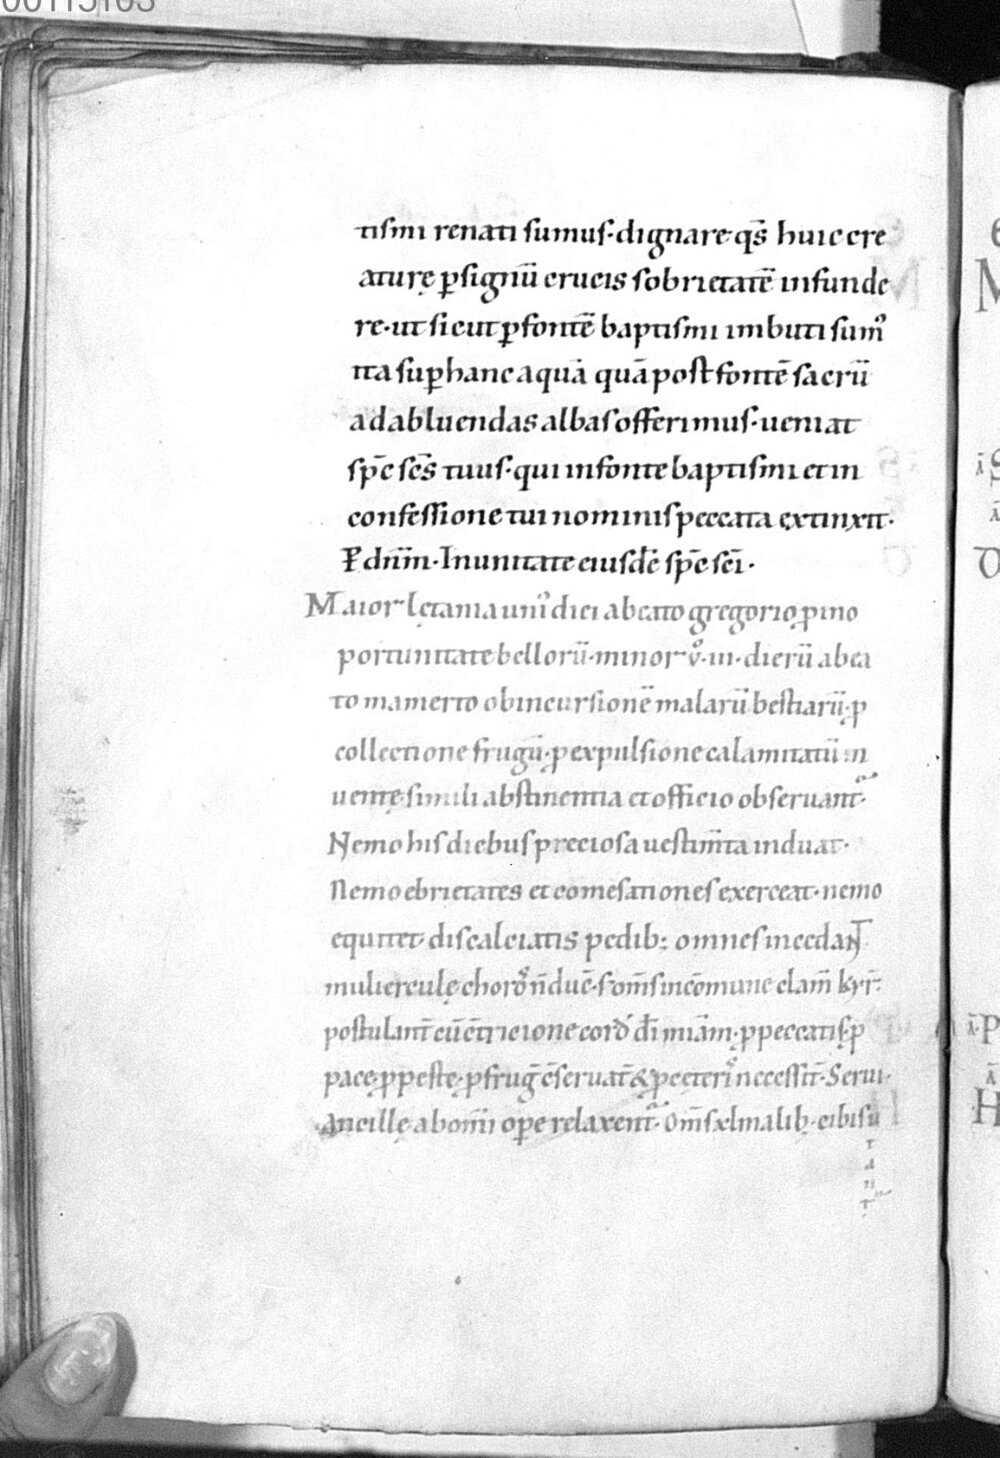 00115103
tismi renati sumus· dignare qs̄ huic cre
aturę ꝑ signū crucis sobrietatē infunde
re· ut sicut ꝑ fontē baptismi imbuti sumꝰ
ita suꝑ hanc aquā quā post fontē sacrū
ad abluendas albas offerimus· ueniat
sp̄c sc̄s tuus· qui in fonte baptismi et in
confessione tui nominis peccata extinxit·
P̄ dn̄m· In unitate eiusdē sp̄c sc̄i·
Maior lętania uniꝰ diei a beato gregorio ꝓ ino
portunitate bellorū· minor v̊· iii· dierū a bea
to mamerto ob incursionē malarū bestiarū· ꝓ
collectione frugū· ꝓ expulsione calamitatū in
uentę· simili abstinentia et officio obseruant᷑·
Nemo his diebus preciosa uestim̄ta induat·
Nemo ebrietates et comesationes exerceat· nemo
equitet· discalciatis pedib: omnes incedaNT
mulierculę choros n̄ ducē· s· om̄s in cōmune clam̄ kyr̄·
postulant̄ cū c̄tricione cord̛ dī miam̄· ꝓ peccatis· ꝓ
pace· ꝓ peste· ꝓ fruḡ c̄seruat̄ & ꝓ cęteris necessit̄· Serui·
Ancillę ab om̄i oꝑe relaxent᷑· Om̄s xlmalib; cibis u
t
a
n
t᷑